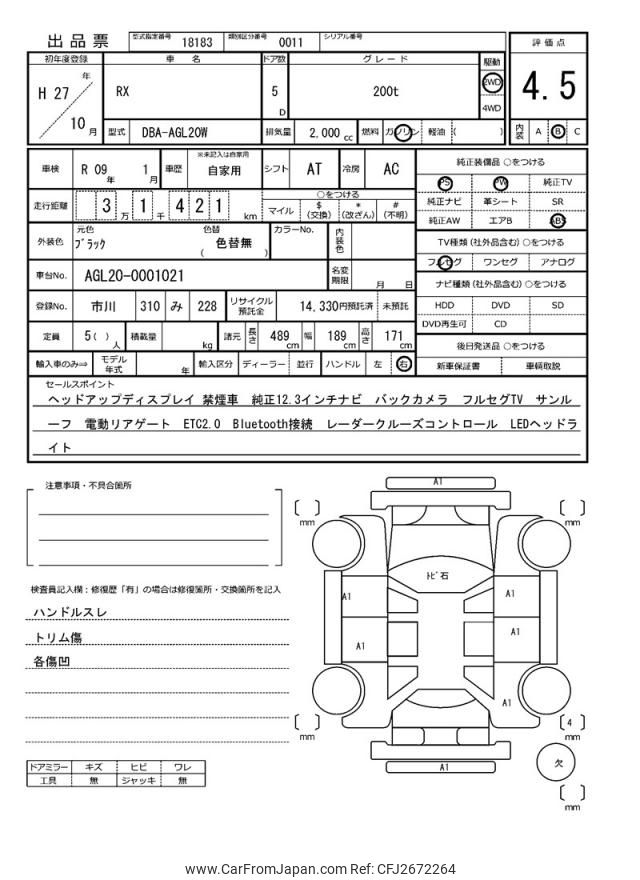 出品票 型式指定番号 18183 類別区分番号 0011 シリアル番号
評価点
4.5
内装 A B C
初年度登録 車名 ドア数 グレード 駆動
H 27 年 10 月 RX 5 D 200t 2WD 4WD
型式 DBA-AGL20W 排気量 2,000 cc 燃料 ガソリン 軽油 ( )
車検 R 09 年 1 月 車歴 ※未記入は自家用 自家用 シフト AT 冷房 AC
走行距離 3 万 1 千 4 2 1 km ○をつける マイル $ (交換) * (改ざん) # (不明)
外装色 元色 ブラック 色替 色替無 ( ) カラーNo. 内装色
車台No. AGL20-0001021 名変期限 月 日
登録No. 市川 310 み 228 リサイクル預託金 14,330円預託済 未預託
定員 5( ) 人 積載量 kg 諸元 長さ 489 cm 幅 189 cm 高さ 171 cm
輸入車のみ⇒ モデル年式 年 輸入区分 ディーラー 並行 ハンドル 左 右
純正装備品 ○をつける
PS PW 純正TV
純正ナビ 革シート SR
純正AW エアB ABS
TV種類 (社外品含む) ○をつける
フルセグ ワンセグ アナログ
ナビ種類 (社外品含む) ○をつける
HDD DVD SD
DVD再生可 CD
後日発送品 ○をつける
新車保証書 車輌取説
セールスポイント
ヘッドアップディスプレイ 禁煙車 純正12.3インチナビ バックカメラ フルセグTV サンル
ーフ 電動リアゲート ETC2.0 Bluetooth接続 レーダークルーズコントロール LEDヘッドラ
イト
注意事項・不具合箇所
検査員記入欄：修復歴「有」の場合は修復箇所・交換箇所を記入
ハンドルスレ
トリム傷
各傷凹
ドアミラー キズ ヒビ ワレ
工具 無 ジャッキ 無
A1
[ ] mm
[ ] mm
トビ石
A1
A1
A1
A1
A1
[ ] mm
[ 4 ] mm
A1
欠
[ ] mm
www.CarFromJapan.com Ref: CFJ2672264